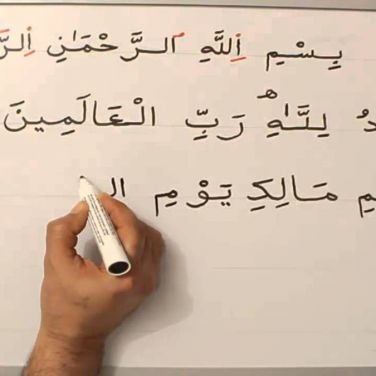 بِسْمِ اللَّهِ الرَّحْمَٰنِ
لِلَّهِ رَبِّ الْعَالَمِينَ
مَالِكِ يَوْمِ